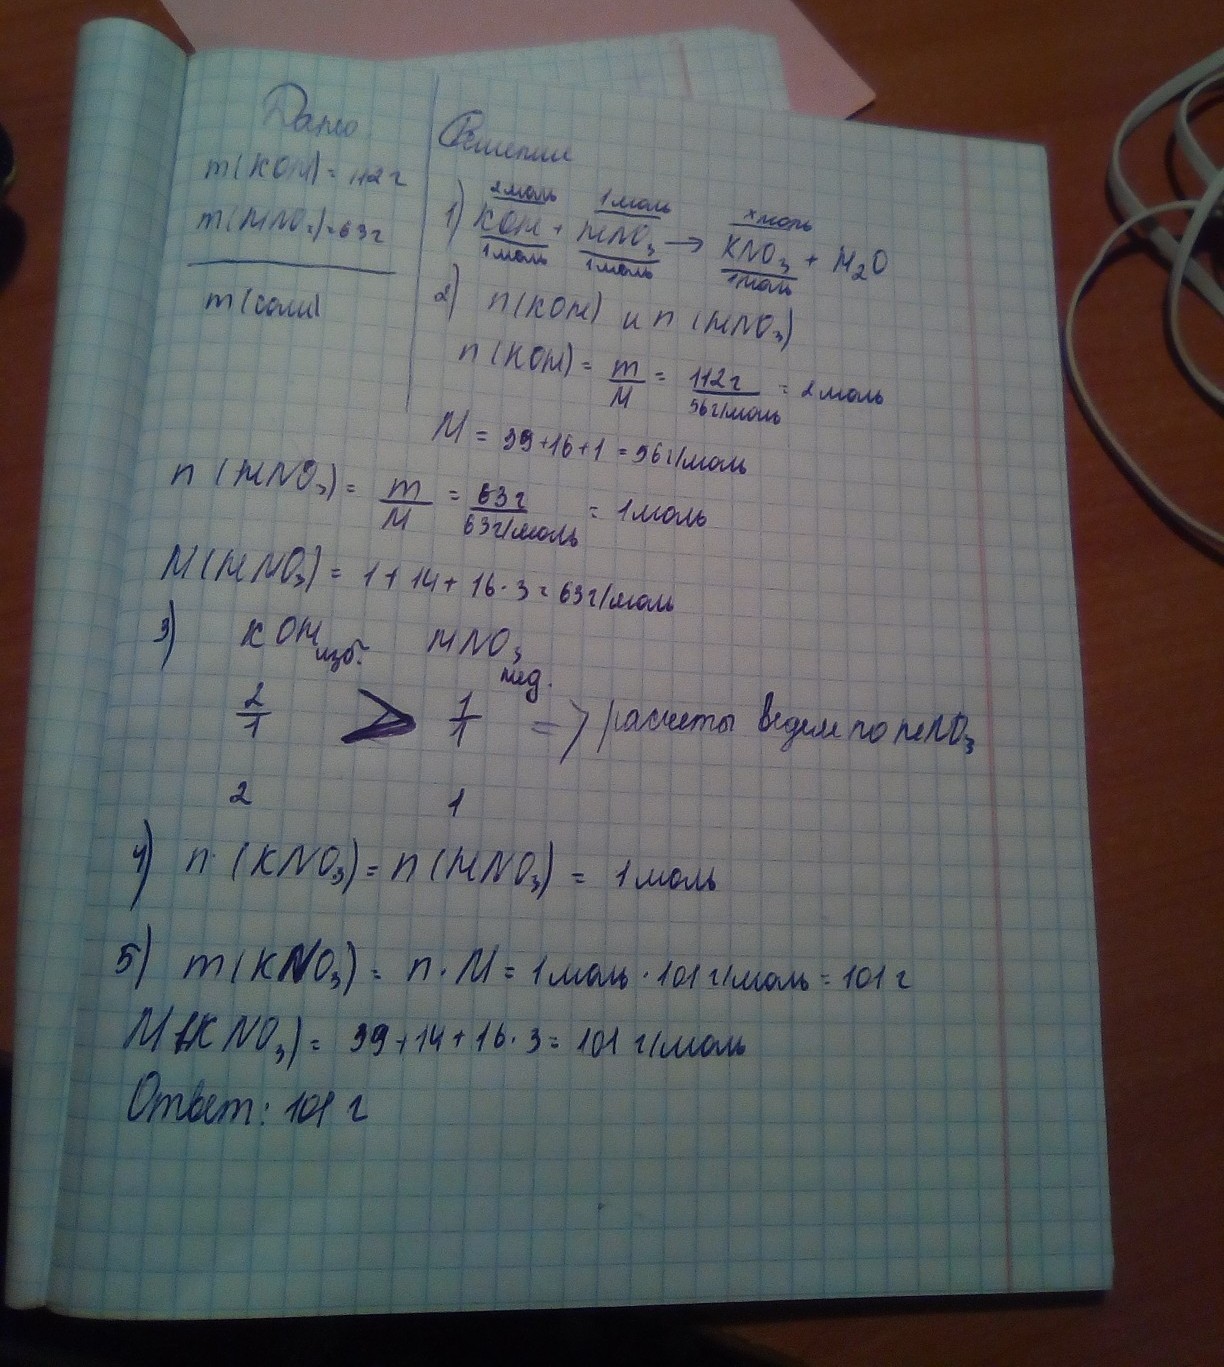 Дано
m(KOH)=112г
m(HNO3)=63г
m(соли)
Решение
2моль 1моль xмоль
1) KOH + HNO3 → KNO3 + H2O
1моль 1моль 1моль
2) n(KOH) и n(HNO3)
n(KOH) = m/M = 112г/56г/моль = 2моль
M = 39+16+1 = 56г/моль
n(HNO3) = m/M = 63г/63г/моль = 1моль
M(HNO3) = 1+14+16·3=63г/моль
3) KOH изб. HNO3 нед.
2/1 > 1/1 => расчеты ведем по HNO3
2 1
4) n(KNO3)=n(HNO3) = 1моль
5) m(KNO3) = n·M = 1моль·101г/моль=101г
M(KNO3)= 39+14+16·3= 101г/моль
Ответ: 101г